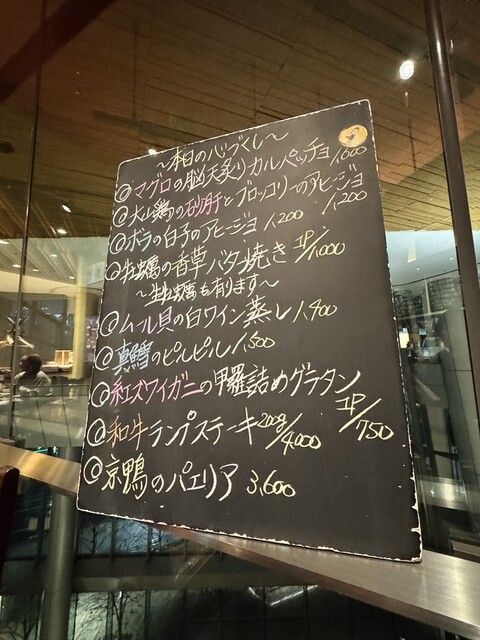 ～本日の心づくし～
◎マグロの脳天炙りカルパッチョ 1,600
◎大山鶏の砂肝とブロッコリーのアヒージョ 1,200
◎ボラの白子のアヒージョ 1,200
◎牡蠣の香草バター焼き 1P/1,000
～生牡蠣も有ります～
◎ムール貝の白ワイン蒸し 1,400
◎真鱈のピルピル 1,500
◎紅ズワイガニの甲羅詰めグラタン 1P/750
◎和牛ランプステーキ 200g/4,000
◎京鴨のパエリア 3,600